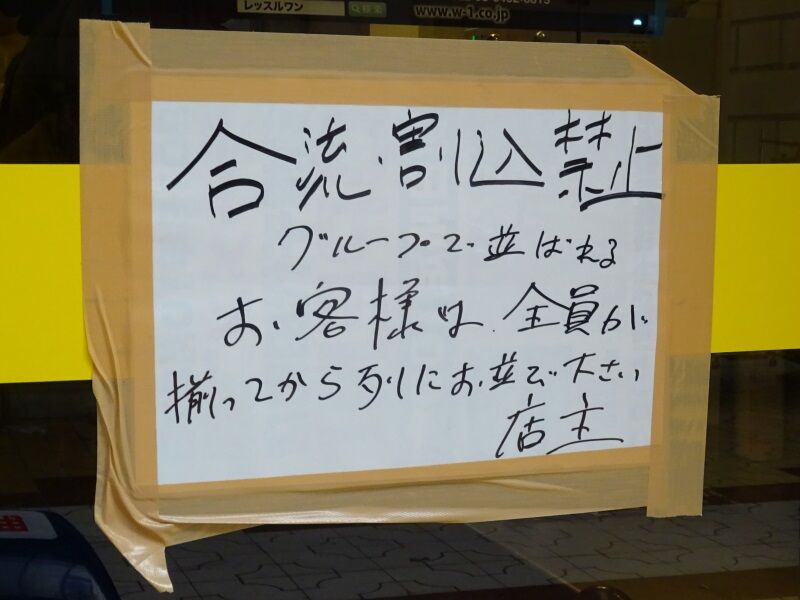 レッスルワン
www.w-1.co.jp
合流・割り込み禁止
グループで並ばれる
お客様は、全員が
揃ってから列にお並び下さい
店主